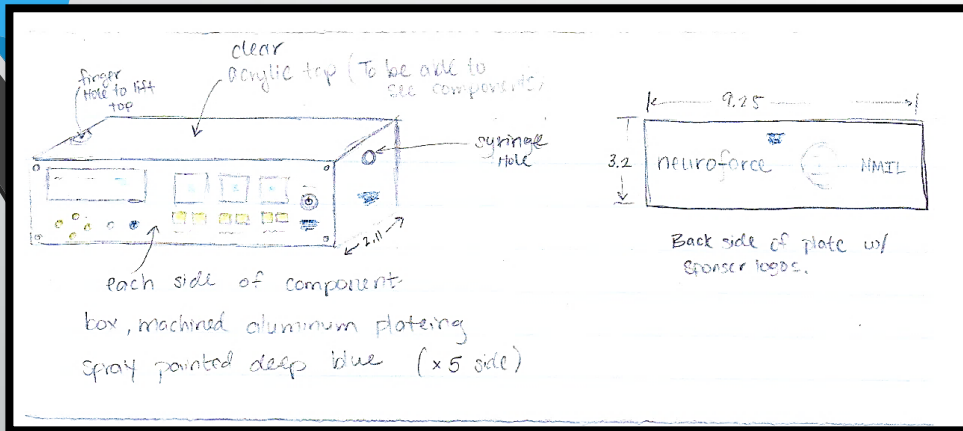 clear
acrylic top (To be able to
see components)
finger
Hole to lift
top
syringe
Hole
2.11
each side of component
box, machined aluminum plateing
spray painted deep blue (x 5 side)
9.25
3.2
neuroforce
NMIL
Back side of plate w/
sponser logos.